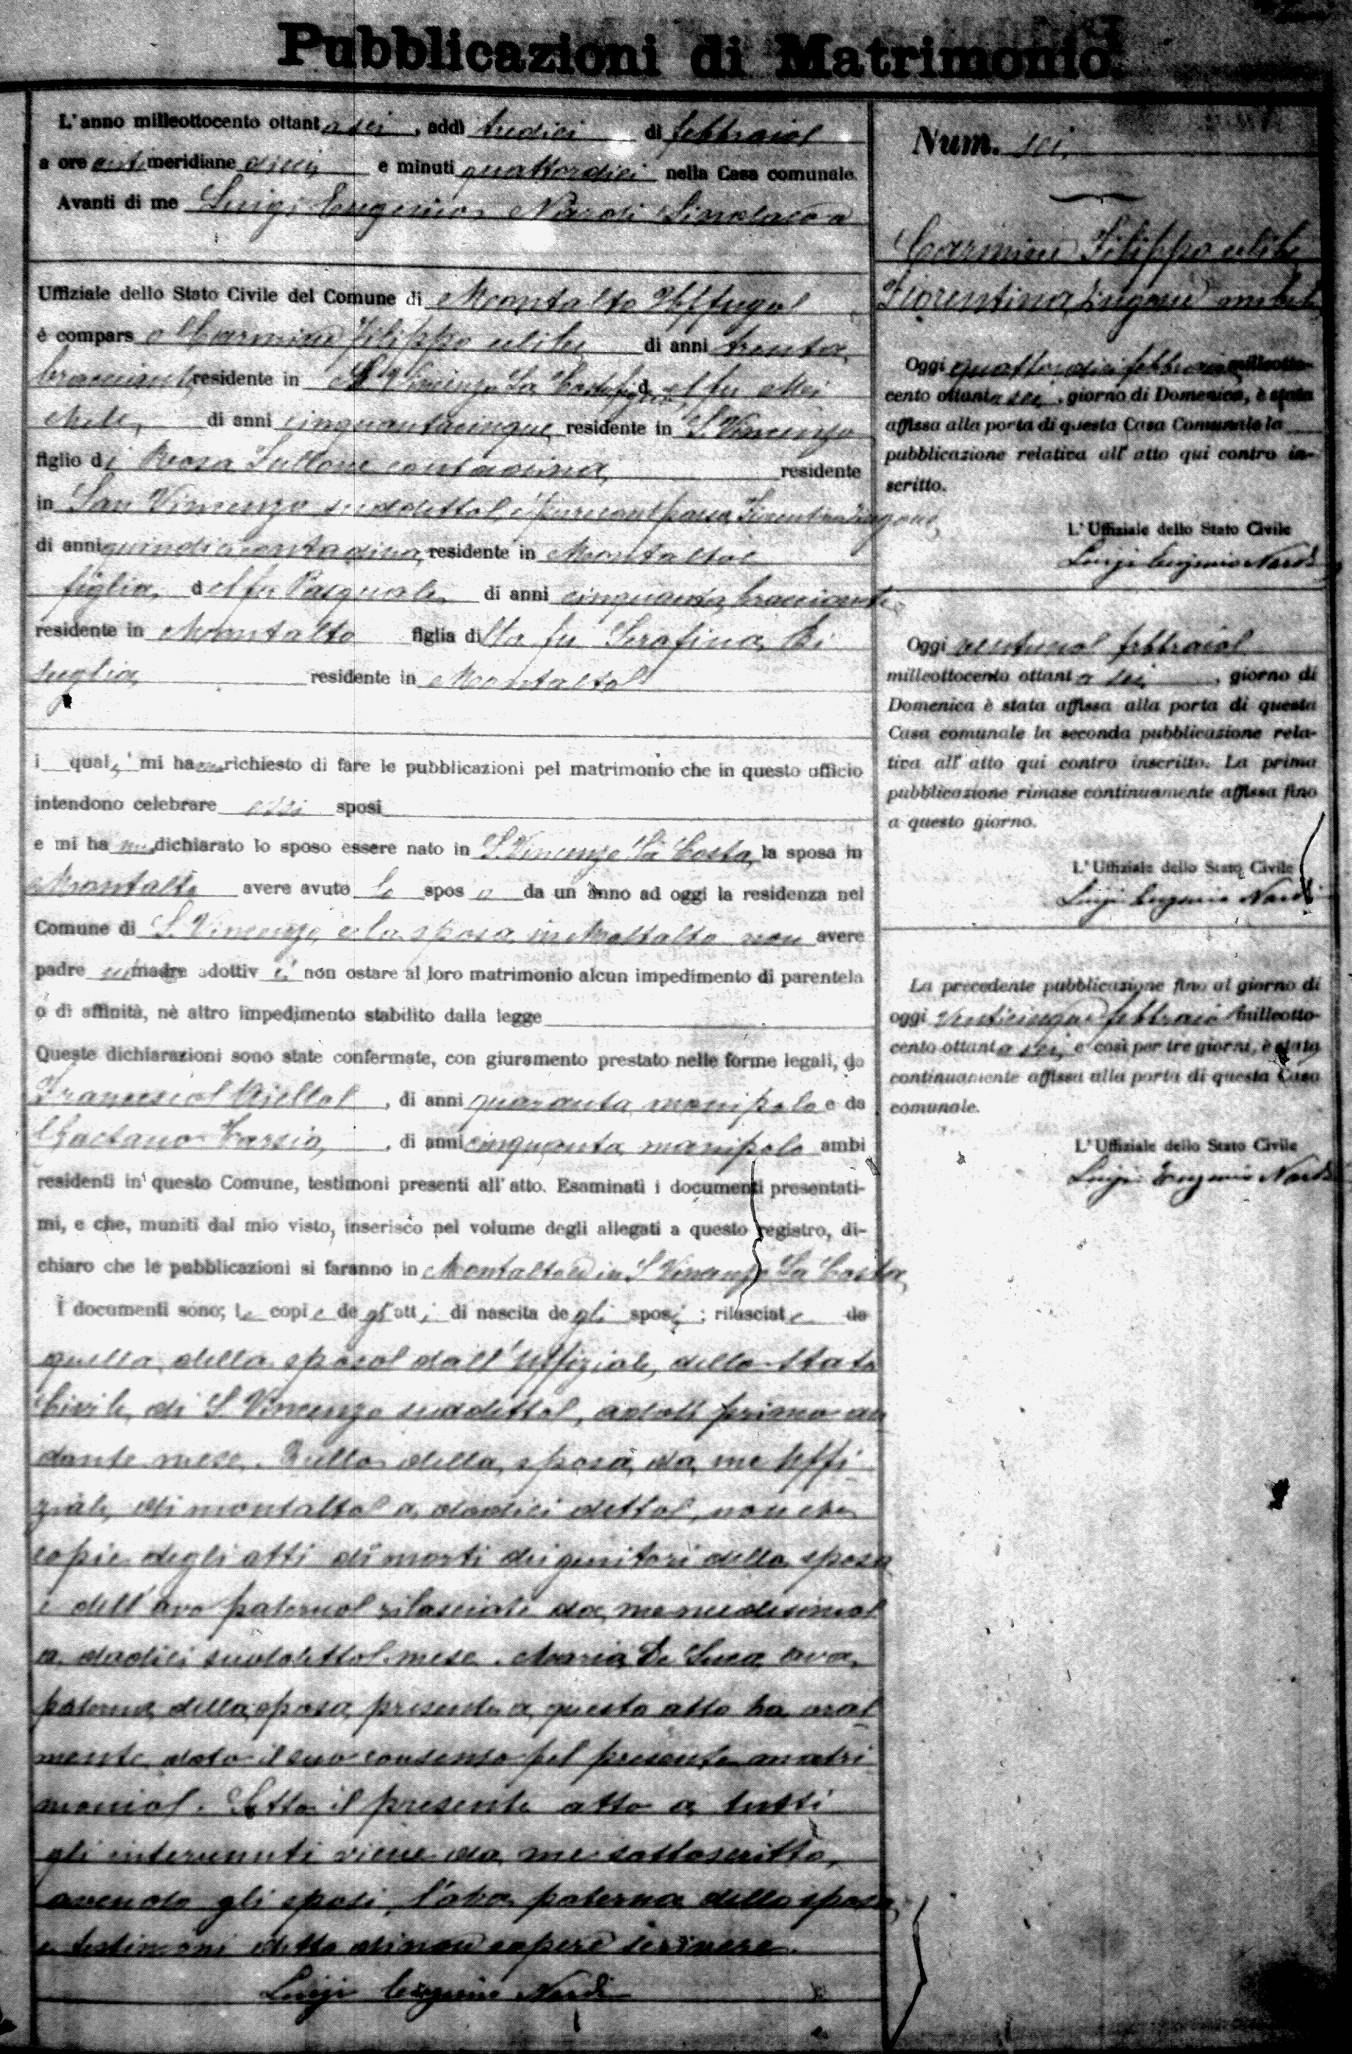 Pubblicazioni di Matrimonio.
L'anno milleottocento ottanta sei, addì tredici di febbraio
a ore anti meridiane dieci e minuti quattordici nella Casa comunale.
Avanti di me Luigi Eugenio Nardi Sindaco
Uffiziale dello Stato Civile del Comune di Montalto Uffugo
è compars o Carmine Filippo celibe di anni trenta
bracciante, residente in S. Vincenzo La Costa figlio del fu Mi
chele, di anni cinquantacinque residente in S. Vincenzo
figlio di Rosa Tullone contadina, residente
in San Vincenzo suddetto, e pure comparsa Fiorentina
di anni quindici contadina, residente in Montalto
figlia del fu Pasquale, di anni cinquanta bracciante
residente in Montalto figlia della fu Serafina
residente in Montalto
i quali mi hanno richiesto di fare le pubblicazioni pel matrimonio che in questo ufficio
intendono celebrare essi sposi
e mi hanno dichiarato lo sposo essere nato in S. Vincenzo La Costa, la sposa in
Montalto avere avuto lo sposo da un anno ad oggi la residenza nel
Comune di S. Vincenzo e la sposa in Montalto non avere
padre nè madre adottivi e non ostare al loro matrimonio alcun impedimento di parentela
o di affinità, nè altro impedimento stabilito dalla legge
Queste dichiarazioni sono state confermate, con giuramento prestato nelle forme legali, da
Francesco Aiello, di anni quaranta manipolo e da
Gaetano Tarsia, di anni cinquanta manipolo ambi
residenti in questo Comune, testimoni presenti all'atto. Esaminati i documenti presentati-
mi, e che, muniti dal mio visto, inserisco nel volume degli allegati a questo registro, di-
chiaro che le pubblicazioni si faranno in Montalto ed in S. Vincenzo La Costa
I documenti sono; le copie degli atti di nascita degli sposi; rilasciate da
quella dello sposo dall'Uffiziale dello Stato
Civile di S. Vincenzo suddetto, addì primo an
dante mese. Quella della sposa da me Uffi
ziale di Montalto a dodici detto, non che
copie degli atti di morti dei genitori della sposa
e dell'avo paterno rilasciate da me medesimo
a dodici suddetto mese. Maria De Luca ava
paterna della sposa presente a questo atto ha oral
mente dato il suo consenso pel presente matri
monio. Letto il presente atto a tutti
gli intervenuti viene da me sottoscritto,
avendo gli sposi, l'ava paterna della sposa
e testimoni detto di non sapere scrivere.
Luigi Eugenio Nardi
Num. sei
Carmine Filippo celibe
Fiorentina nubile
Oggi quattordici febbraio milleotto-
cento ottanta sei, giorno di Domenica, è stata
affissa alla porta di questa Casa Comunale la
pubblicazione relativa all'atto qui contro in-
scritto.
L'Uffiziale dello Stato Civile
Luigi Eugenio Nardi
Oggi ventuno febbraio
milleottocento ottanta sei, giorno di
Domenica è stata affissa alla porta di questa
Casa comunale la seconda pubblicazione rela-
tiva all'atto qui contro inscritto. La prima
pubblicazione rimase continuamente affissa fino
a questo giorno.
L'Uffiziale dello Stato Civile
Luigi Eugenio Nardi
La precedente pubblicazione fino al giorno di
oggi venticinque febbraio milleotto-
cento ottanta sei, e così per tre giorni, è stata
continuamente affissa alla porta di questa Casa
comunale.
L'Uffiziale dello Stato Civile
Luigi Eugenio Nardi